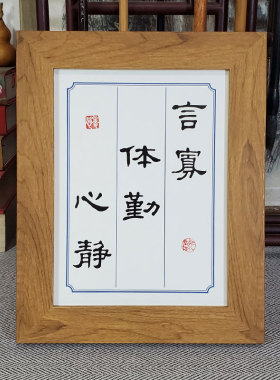 言寡
体勤
心静